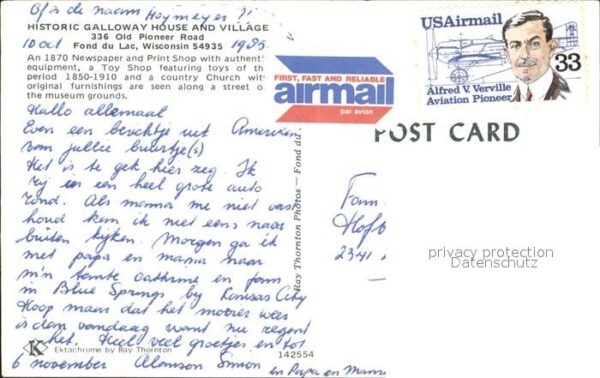 Of is de naam Hoymeyer
HISTORIC GALLOWAY HOUSE AND VILLAGE
336 Old Pioneer Road
10 oct 1985
Fond du Lac, Wisconsin 54935
An 1870 Newspaper and Print Shop with authent
equipment, a Toy Shop featuring toys of th
period 1850-1910 and a country Church wit
original furnishings are seen along a street o
the museum grounds.
Hallo allemaal
Even een berichtje uit Amerika
van jullie buurtje(s)
Het is te gek hier zeg. Ik
rij in een heel grote auto
rond. Als mama me niet vast
houd kan ik niet eens naar
buiten kijken. Morgen ga ik
met papa en mama naar
m'n tante Cathrine en
in Blue Springs by Kansas City
Hoop maar dat het mooier weer
is dem vandaag want nu regent
het. Heel veel groetjes en tot
6 november Simon
en Papa en Mama
K
Ektachrome by Ray Thornton
142554
Ray Thornton Photos — Fond du
FIRST, FAST AND RELIABLE
airmail
par avion
USAirmail
33
Alfred V. Verville
Aviation Pioneer
POST CARD
Fam
Hof
2341
privacy protection
Datenschutz